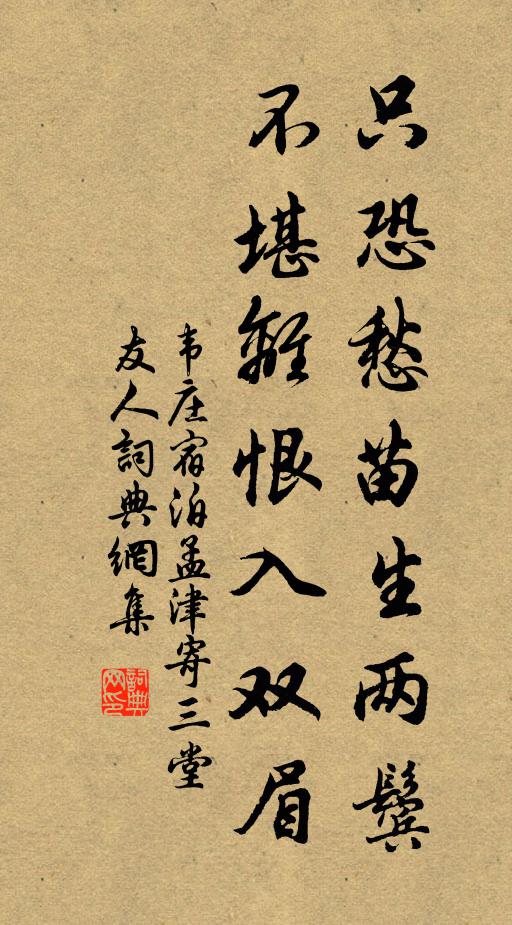 只恐愁苗生两鬓
不堪離恨入双眉
韦庄宿泊孟津寄三堂
友人詞典網集
詞典
网印